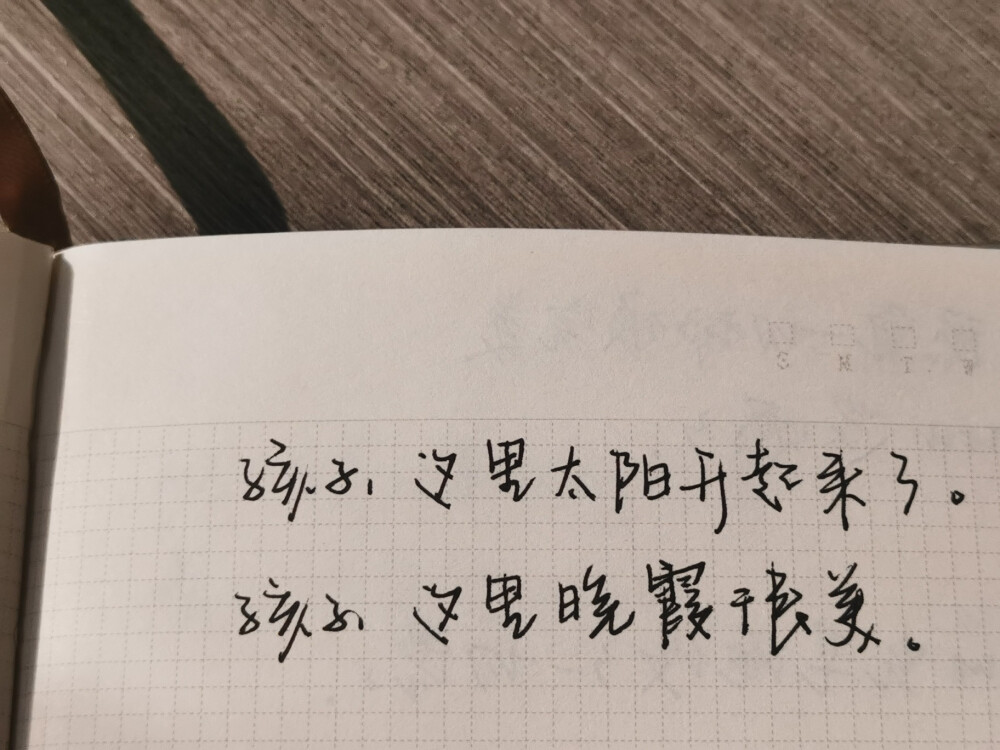 孩子,这里太阳升起来了。
孩子,这里晚霞很美。